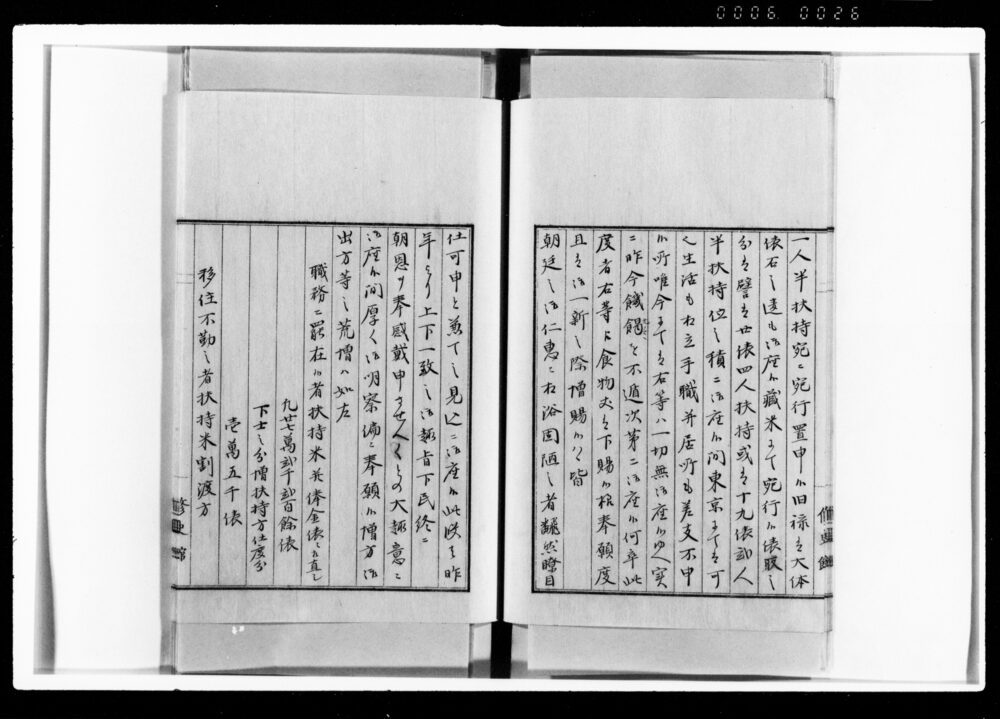 0006 0026
一人半扶持宛ニ宛行置申候旧禄ハ大体
俵石之違も御座候蔵米ニて宛行候俵服之
分ハ譬ハ廿俵四人扶持或ハ十九俵弐人
半扶持位之積ニ御座候間東京ニてハ可
也生活も相立手職并居所も差支不申
候所唯今ニてハ右等ハ一切無御座候ゆへ実
ニ昨今餓餲を不遁次第ニ御座候何卒此
度者右等江食物丈ハ下賜候様奉願度
且ハ御一新之際増賜候ハヽ皆
朝廷之御仁恵ニ相浴固陋之者翻然瞭目
修史館
仕可申と兼て之見込ニ御座候此段ハ昨
年より上下一致之御趣旨下民終ニ
朝恩ヲ奉感戴申させんとの大趣意ニ
御座候間厚く御明察偏ニ奉願候増方御
出方等之荒増ハ如左
職務ニ罷在候者扶持米并俸金俵ニ直し
凡廿七萬弐千弐百餘俵
下士之分増扶持方仕度分
壱萬五千俵
移住不勤之者扶持米割渡方
修史館